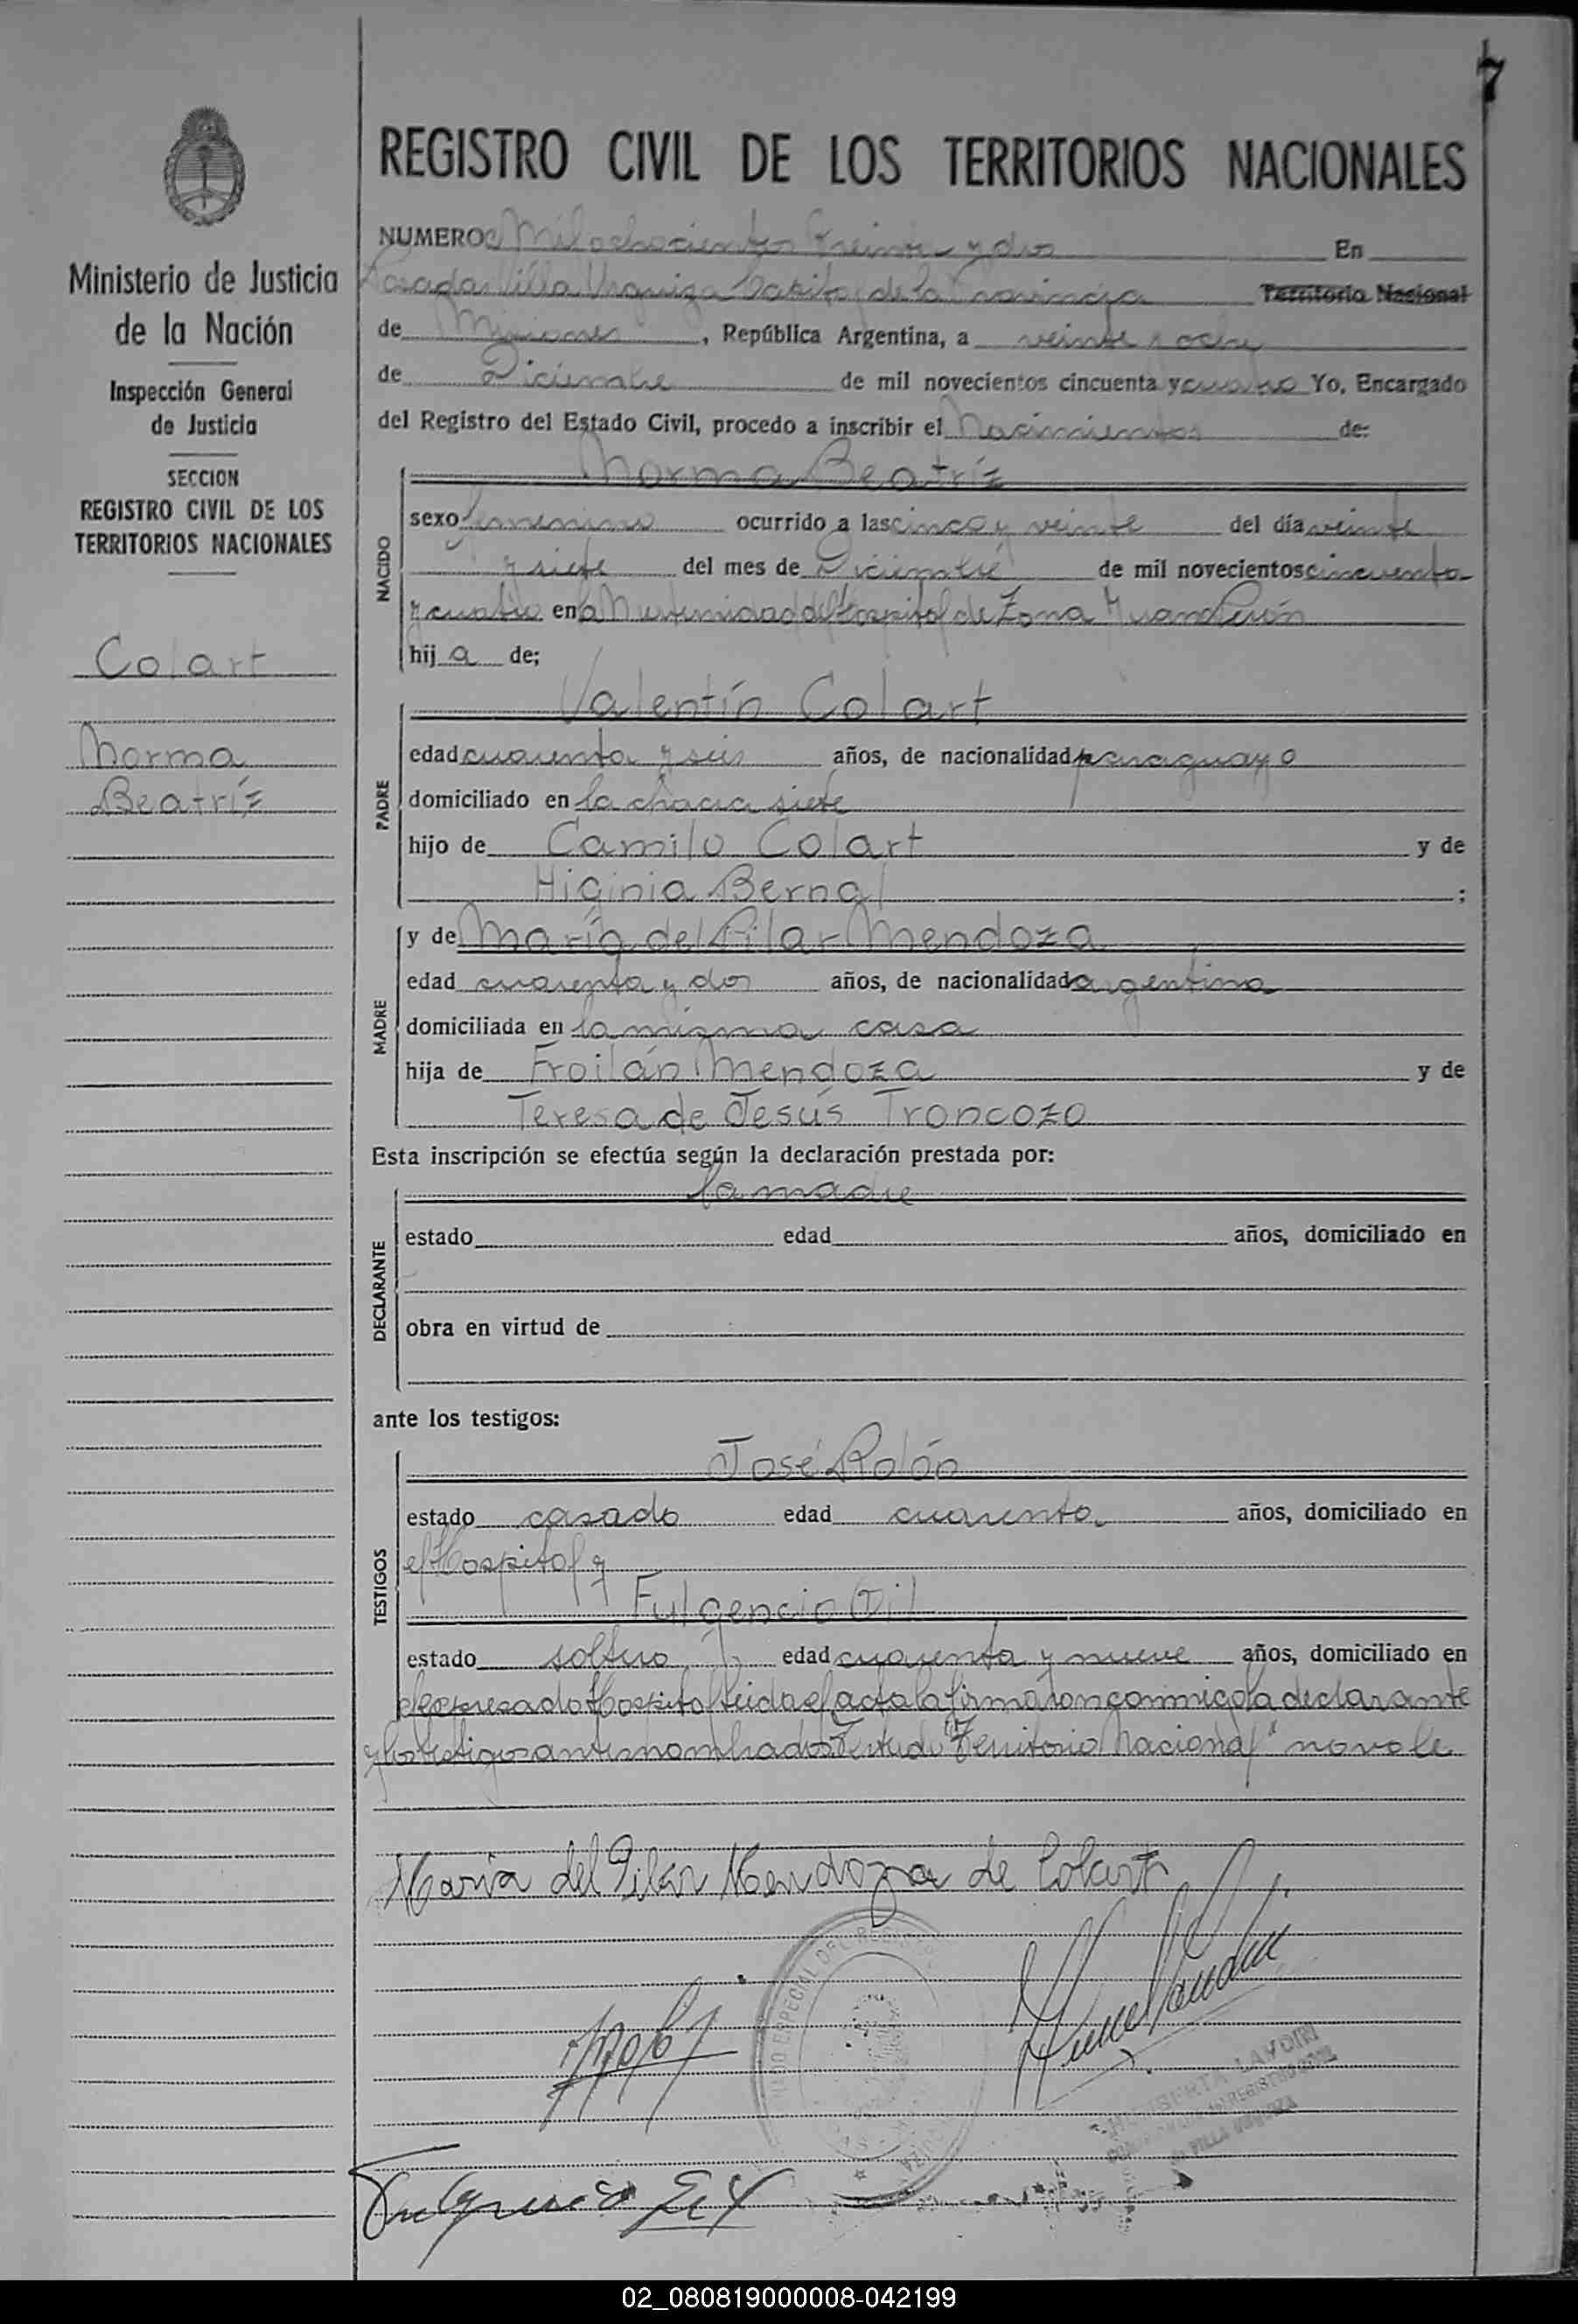 7
REGISTRO CIVIL DE LOS TERRITORIOS NACIONALES
Ministerio de Justicia
de la Nación
Inspección General
de Justicia
SECCION
REGISTRO CIVIL DE LOS
TERRITORIOS NACIONALES
Colart
Norma
Beatríz
NUMERO Mil ochocientos treinta y dos En
Posadas Villa Urquiza Capital de la Provincia Territorio Nacional
de Misiones, República Argentina, a veinte y ocho
de Diciembre de mil novecientos cincuenta y cuatro Yo, Encargado
del Registro del Estado Civil, procedo a inscribir el Nacimiento de:
NACIDO
Norma Beatríz
sexo femenino ocurrido a las cinco y veinte del día veinte
y siete del mes de Diciembre de mil novecientos cincuenta
y cuatro en la Maternidad del Hospital de Zona Juan Perón
hija de;
PADRE
Valentín Colart
edad cuarenta y seis años, de nacionalidad paraguayo
domiciliado en la chacra siete
hijo de Camilo Colart y de
Higinia Bernal;
MADRE
y de María del Pilar Mendoza
edad cuarenta y dos años, de nacionalidad argentina
domiciliada en la misma casa
hija de Froilán Mendoza y de
Teresa de Jesús Troncozo
Esta inscripción se efectúa según la declaración prestada por:
DECLARANTE
la madre
estado edad años, domiciliado en
obra en virtud de
ante los testigos:
TESTIGOS
José Rolón
estado casado edad cuarenta años, domiciliado en
el Hospital y
Fulgencio Gil
estado soltero edad cuarenta y nueve años, domiciliado en
el expresado Hospital leida el acta la firmaron conmigo la declarante
y los testigos antes nombrados Testado "Territorio Nacional" no vale
María del Pilar Mendoza de Colart
ESPECIAL DEL REGISTRO
LANDIN
VILLA URQUIZA
Fulgencio Gil
02_080819000008-042199